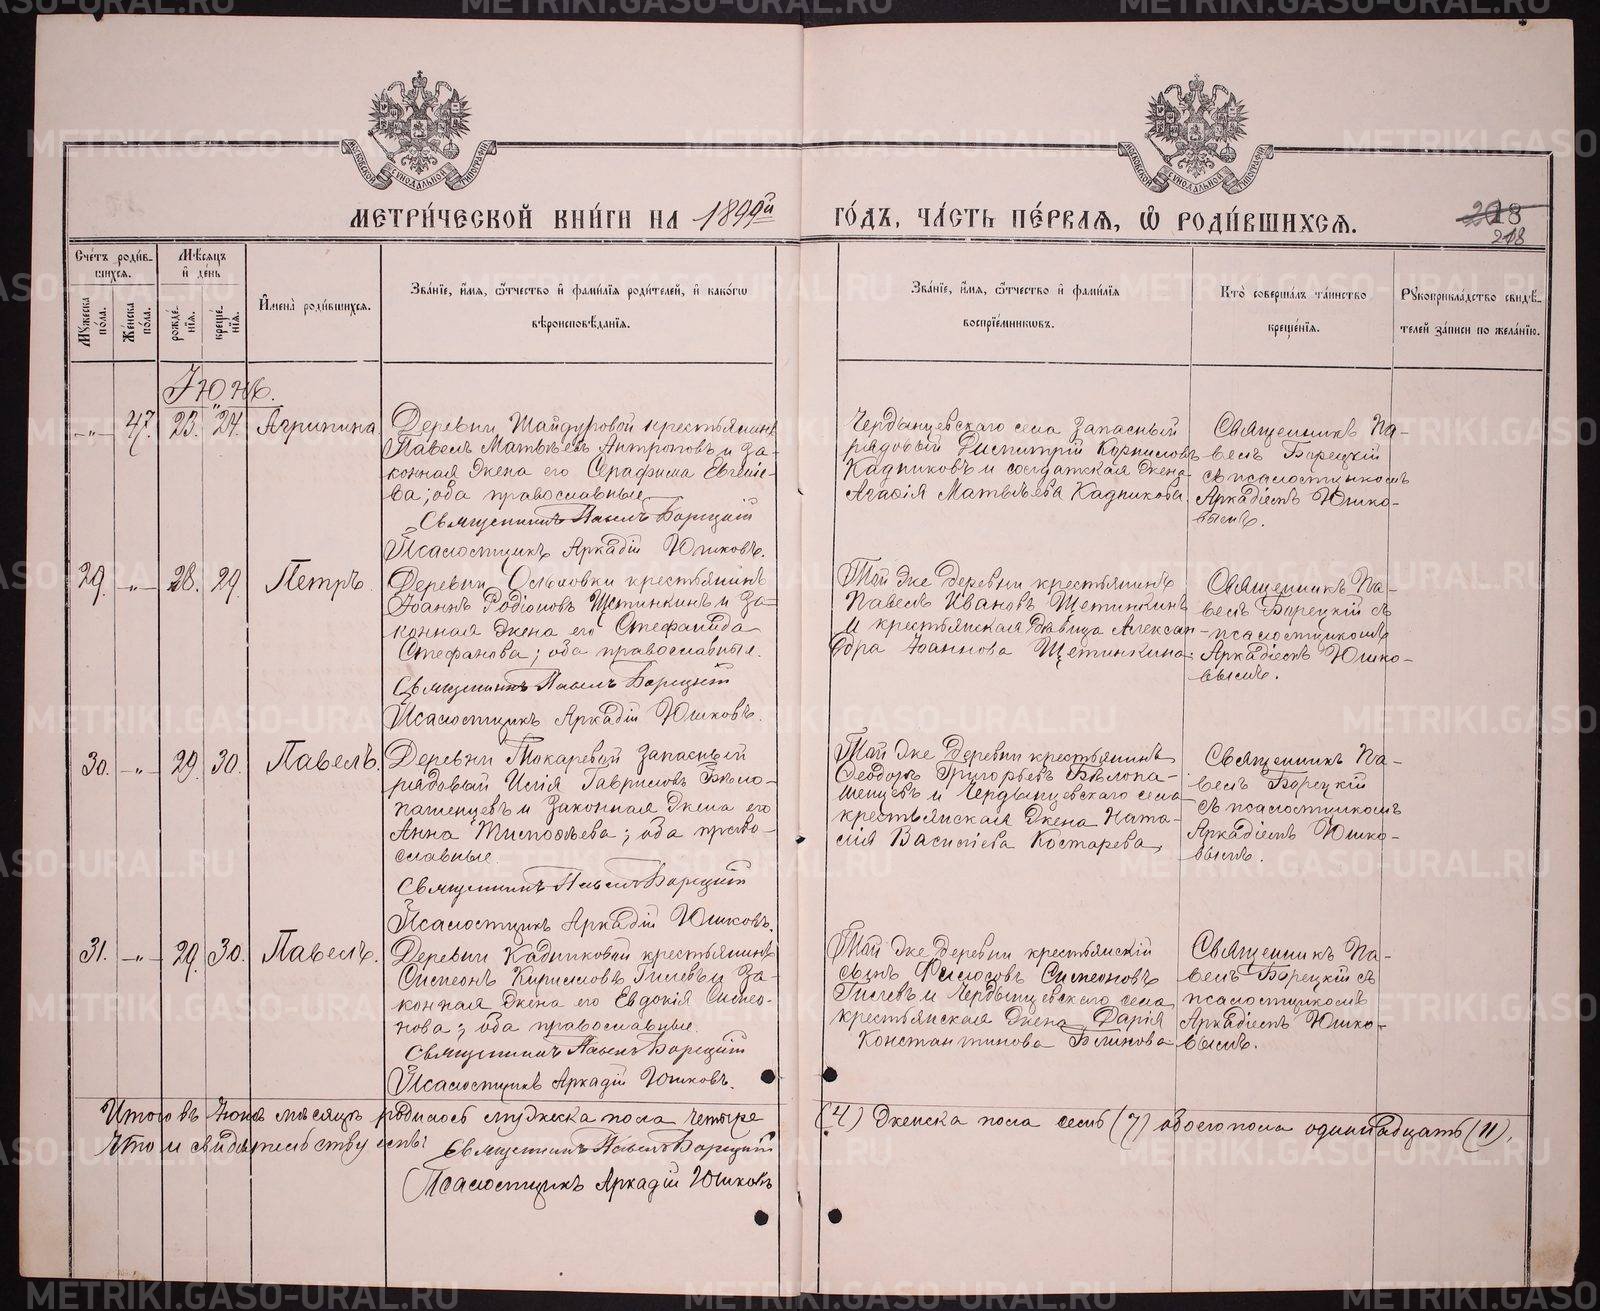 МОСКОВСКОЙ СѴНОДАЛЬНОЙ ТИПОГРАФІИ
МОСКОВСКОЙ СѴНОДАЛЬНОЙ ТИПОГРАФІИ
МЕТРИ́ЧЕСКОЙ КНИ́ГИ НА 1899й ГО́ДЪ, ЧА́СТЬ ПЕ́РВАѦ, Ѡ҆ РОДИ́ВШИХСѦ.
218
Сче́тъ роди́в-
шихсѧ.
Мꙋ́жеска по́ла.
Же́нска по́ла.
Мѣ́сѧцъ и҆ де́нь
рожде́-нїѧ.
креще́-нїѧ.
И҆мена̀ роди́вшихсѧ.
Зва́нїе, и҆́мѧ, ѻ҆́тчество и҆ фами́лїѧ роди́телей, и҆ како́гѡ
вѣроисповѣ́данїѧ.
Зва́нїе, и҆́мѧ, ѻ҆́тчество и҆ фами́лїѧ
воспрїе́мникѡвъ.
Кто̀ соверша́лъ та́инство
креще́нїѧ.
Рꙋкоприкла́дство свидѣ́-
телей за́писи по жела́нїю.
Іюнь.
-„- 47. 23. 24. Агрипина
Деревни Шайдуровой крестьянинъ
Павелъ Матвѣевъ Антроповъ и за-
конная жена его Серафима Евгеніе-
ва; оба православные
Священникъ Павелъ Борецкій
Псаломщикъ Аркадій Юшковъ.
Чердынцевскаго села запасный
рядовый Димитрій Корниловъ
Кадниковъ и солдатская жена
Агафія Матвѣева Кадникова
Священникъ Па-
велъ Борецкій
съ псаломщикомъ
Аркадіемъ Юшко-
вымъ.
29. -„- 28. 29. Петръ.
Деревни Ольховки крестьянинъ
Іоаннъ Родіоновъ Щетинкинъ и за-
конная жена его Стефанида
Стефанова; оба православные.
Священникъ Павелъ Борецкій
Псаломщикъ Аркадій Юшковъ.
Той же деревни крестьянинъ
Павелъ Ивановъ Щетинкинъ
и крестьянская дѣвица Алексан-
дра Іоаннова Щетинкина.
Священникъ Па-
велъ Борецкій съ
псаломщикомъ
Аркадіемъ Юшко-
вымъ.
30. -„- 29. 30. Павелъ.
Деревни Токаревой запасный
рядовый Илія Гавриловъ Бѣло-
пашенцевъ и законная жена его
Анна Тимофѣева; оба право-
славные.
Священникъ Павелъ Борецкій
Псаломщикъ Аркадій Юшковъ.
Той же деревни крестьянинъ
Ѳеодоръ Григорьевъ Бѣлопа-
шенцевъ и Чердынцевскаго села
крестьянская жена Ната-
лія Василіева Костарева
Священникъ Па-
велъ Борецкій
съ псаломщикомъ
Аркадіемъ Юшко-
вымъ.
31. -„- 29. 30. Павелъ.
Деревни Кадниковой крестьянинъ
Симеонъ Кирилловъ Гилевъ и за-
конная жена его Евдокія Симео-
нова; оба православные.
Священникъ Павелъ Борецкій
Псаломщикъ Аркадій Юшковъ.
Той же деревни крестьянскій
сынъ Симеоновъ
Гилевъ и Чердынцевскаго села
крестьянская жена Дарія
Константинова Блинова
Священникъ Па-
велъ Борецкій съ
псаломщикомъ
Аркадіемъ Юшко-
вымъ.
Итого въ Іюнѣ мѣсяцѣ родилось мужеска пола четыре (4) женска пола семь (7) обоего пола одиннадцать (11),
Что и свидѣтельствуемъ: Священникъ Павелъ Борецкій
Псаломщикъ Аркадій Юшковъ
METRIKI.GASO-URAL.RU